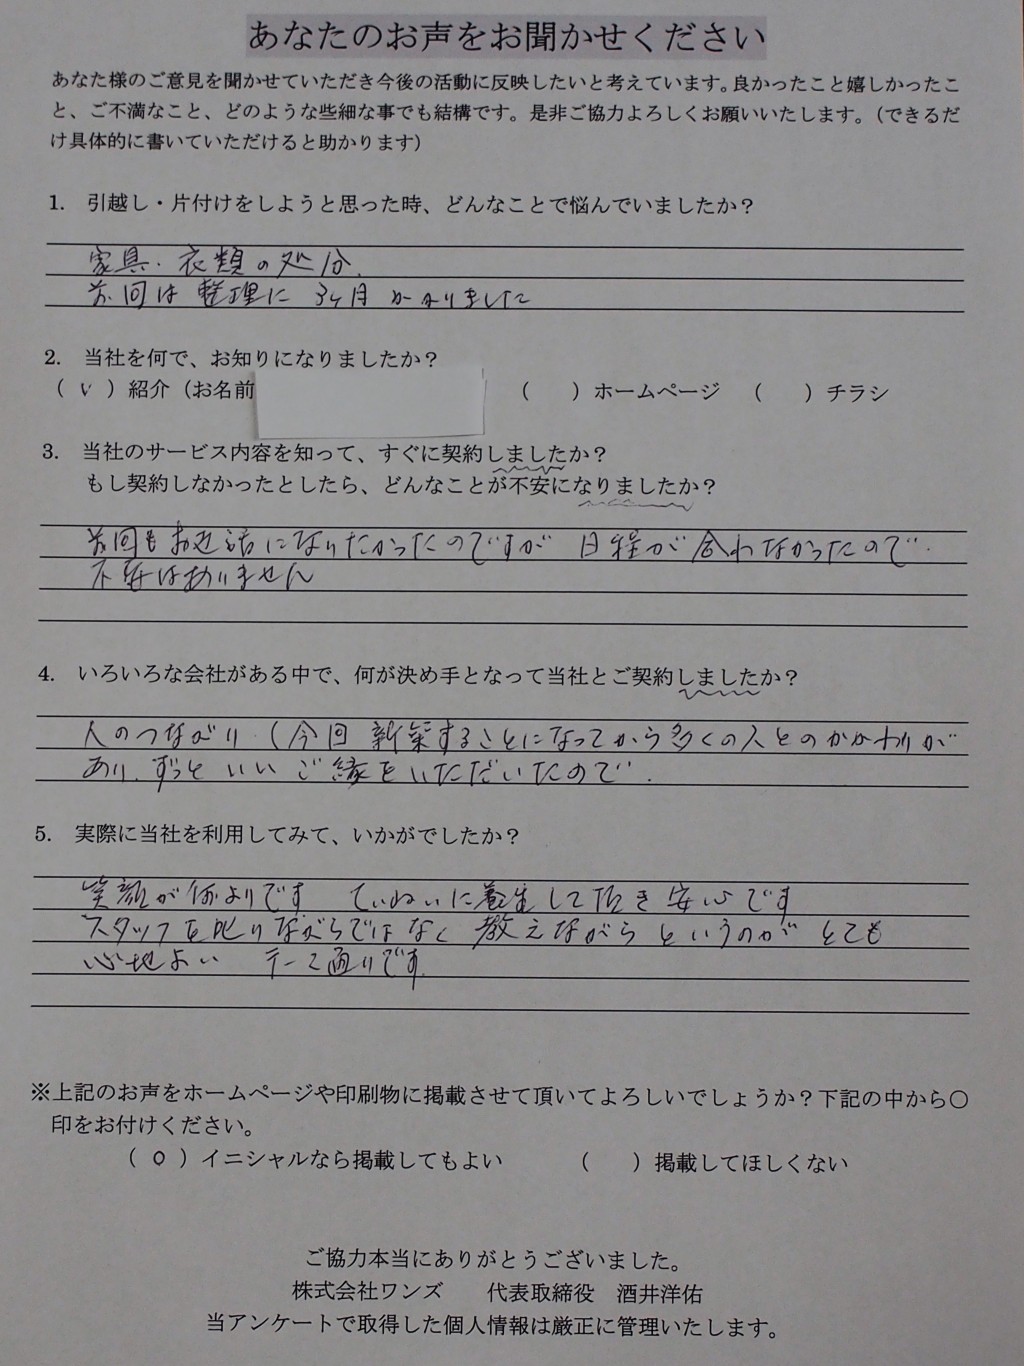 あなたのお声をお聞かせください
あなた様のご意見を聞かせていただき今後の活動に反映したいと考えています。良かったこと嬉しかったこ
と、ご不満なこと、どのような些細な事でも結構です。是非ご協力よろしくお願いいたします。（できるだ
け具体的に書いていただけると助かります）
1. 引越し・片付けをしようと思った時、どんなことで悩んでいましたか？
家具・衣類の処分、
前回は整理に3ヶ月かかりました
2. 当社を何で、お知りになりましたか？
（ ✓ ）紹介（お名前 （ ）ホームページ （ ）チラシ
3. 当社のサービス内容を知って、すぐに契約しましたか？
もし契約しなかったとしたら、どんなことが不安になりましたか？
前回もお世話になりたかったのですが 日程が合わなかったので、
不安はありません
4. いろいろな会社がある中で、何が決め手となって当社とご契約しましたか？
人のつながり、（今回 新築することになってから多くの人とのかかわりが
あり、ずっといいご縁をいただいたので、
5. 実際に当社を利用してみて、いかがでしたか？
笑顔が何よりです ていねいに養生して頂き安心です
スタッフを叱りながらではなく 教えながらというのがとても
心地よい 通りです。
※上記のお声をホームページや印刷物に掲載させて頂いてよろしいでしょうか？下記の中から○
印をお付けください。
（ ○ ）イニシャルなら掲載してもよい （ ）掲載してほしくない
ご協力本当にありがとうございました。
株式会社ワンズ 代表取締役 酒井洋佑
当アンケートで取得した個人情報は厳正に管理いたします。